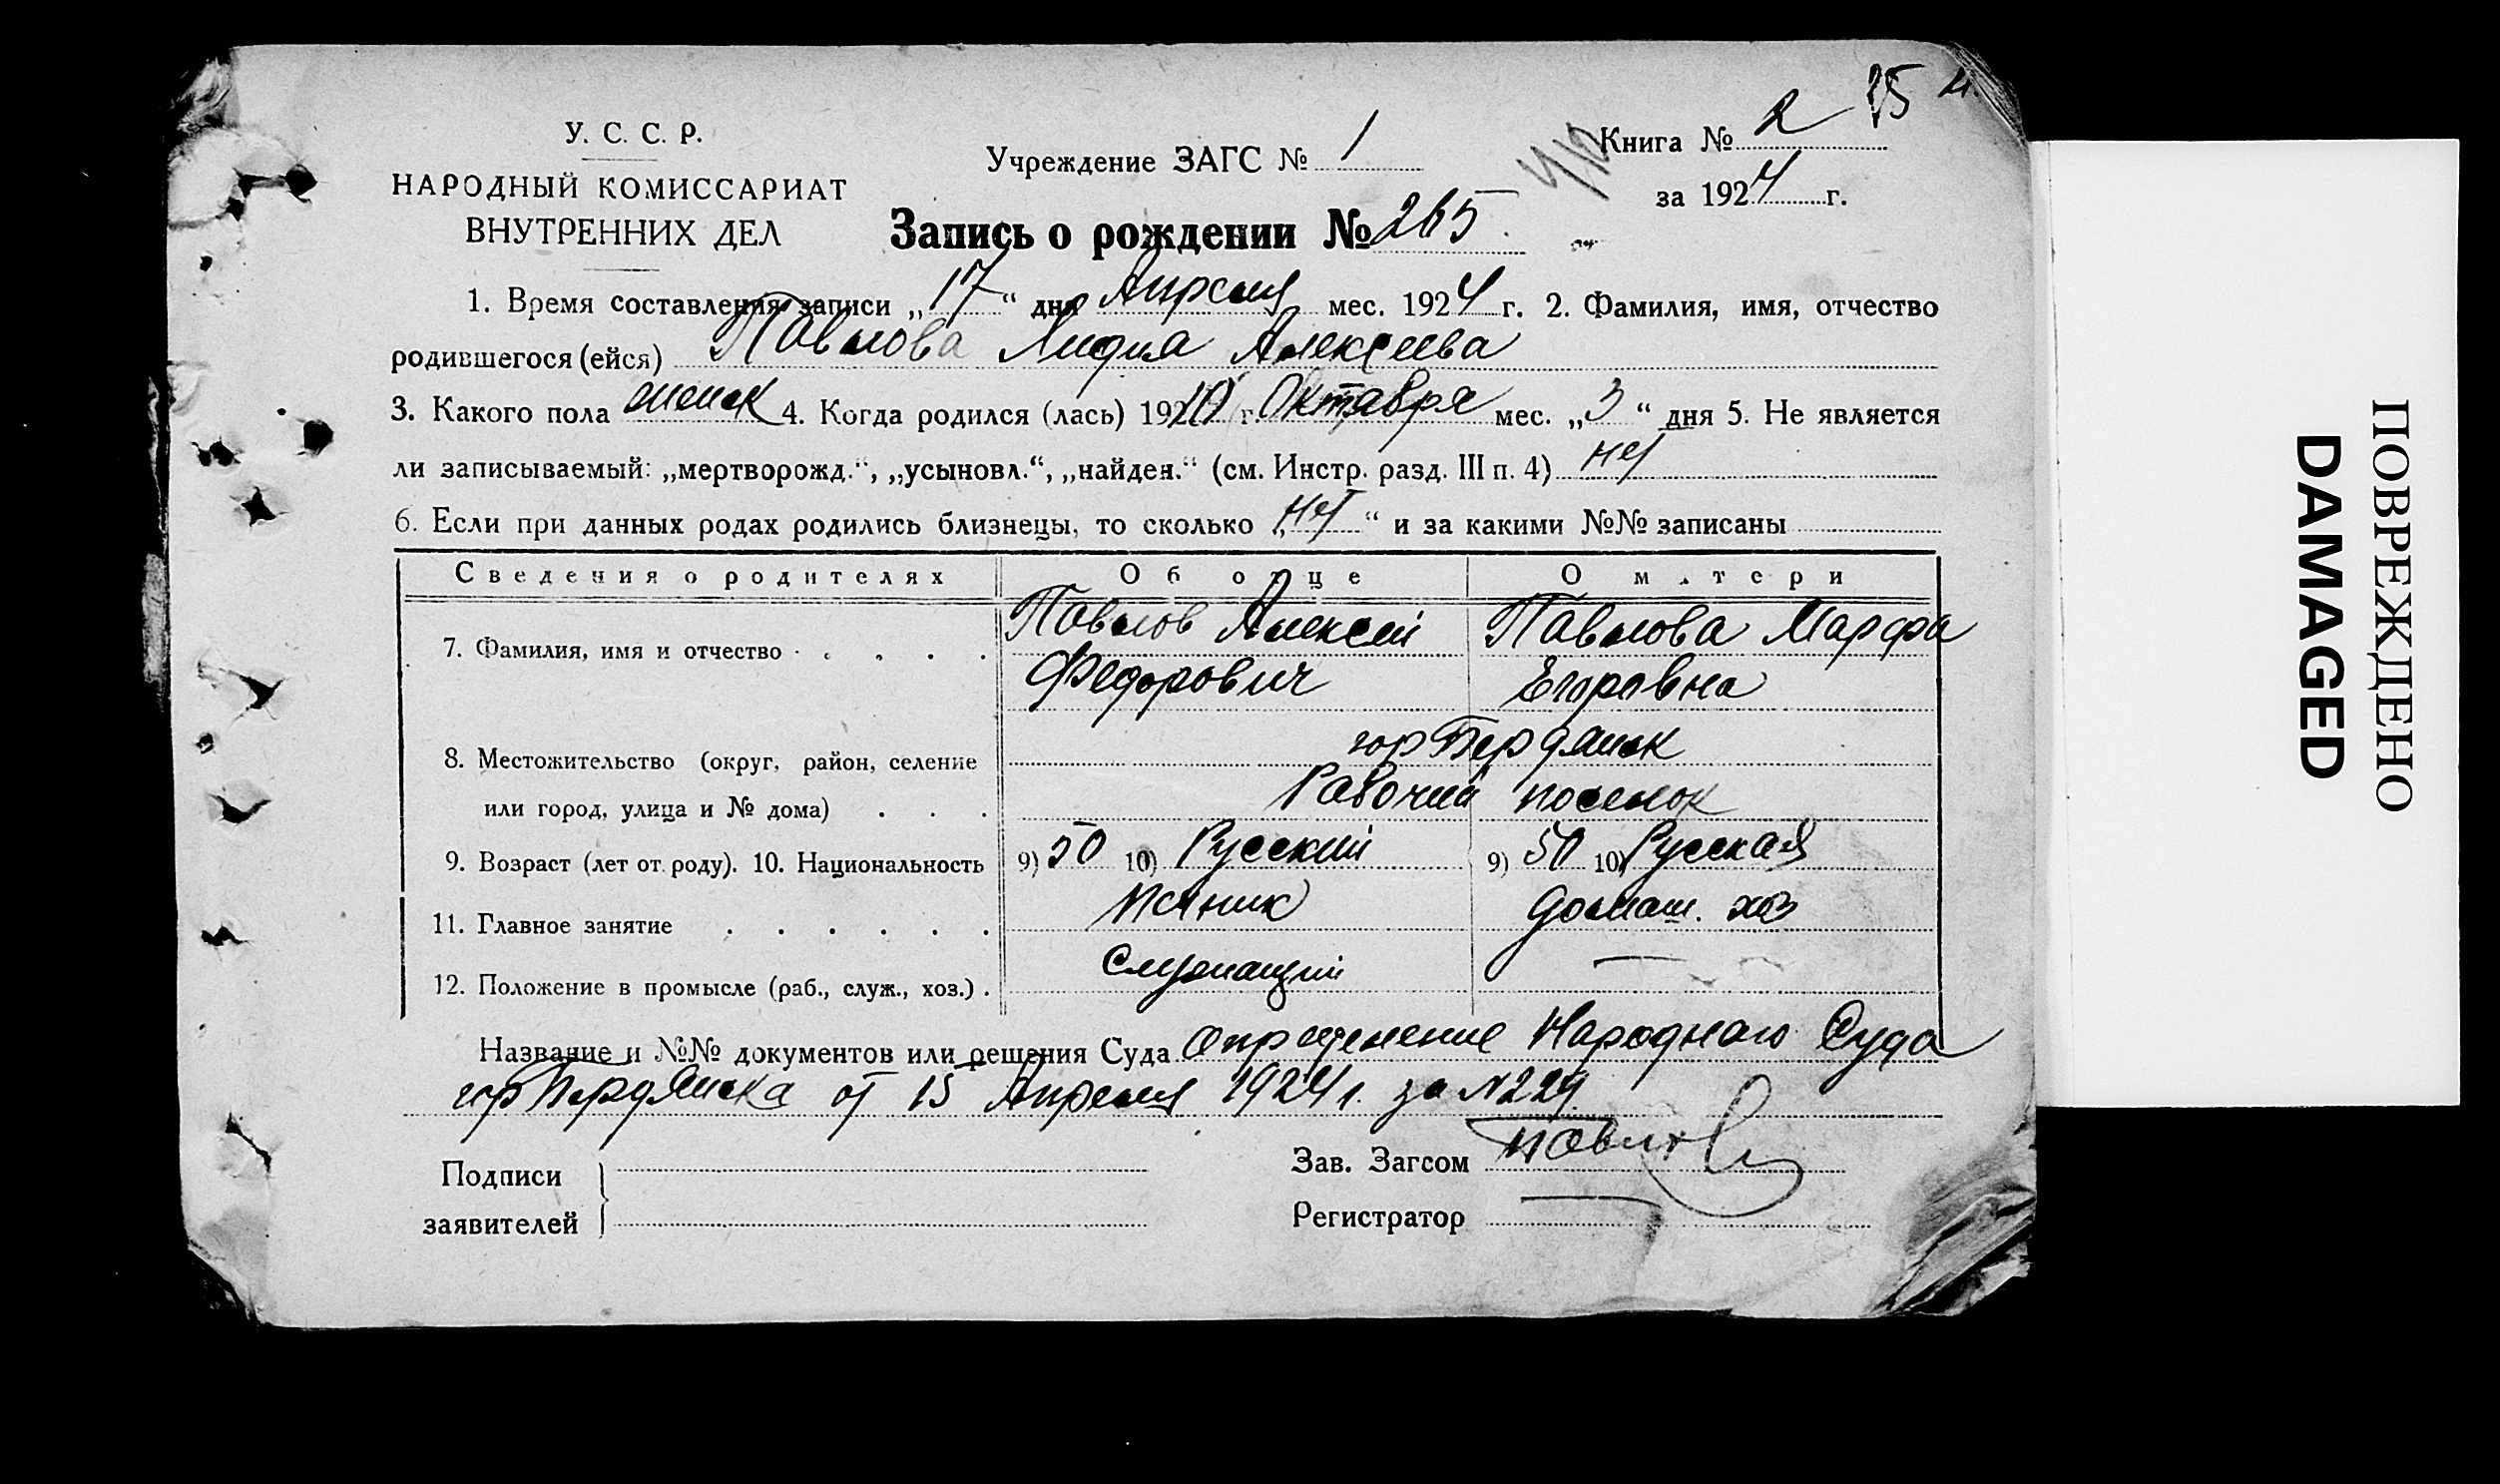 У. С. С. Р.
НАРОДНЫЙ КОМИССАРИАТ
ВНУТРЕННИХ ДЕЛ
Учреждение ЗАГС № 1
Книга № 2
за 1924 г.
Запись о рождении № 265.
1. Время составления записи „17“ дня Апреля мес. 1924 г. 2. Фамилия, имя, отчество
родившегося (ейся) Павлова Лидия Алексеева
3. Какого пола женск 4. Когда родился (лась) 19 г. Октября мес. „3“ дня 5. Не является
ли записываемый: „мертворожд.“, „усыновл.“, „найден.“ (см. Инстр. разд. III п. 4) нет
6. Если при данных родах родились близнецы, то сколько „нет“ и за какими №№ записаны
Сведения о родителях Об отце О матери
7. Фамилия, имя и отчество Павлов Алексей Павлова Марфа
Федорович Егоровна
8. Местожительство (округ, район, селение гор Бердянск
или город, улица и № дома) Рабочий поселок
9. Возраст (лет от роду). 10. Национальность 9) 50 10) Русский 9) 50 10) Русская
11. Главное занятие домаш. хоз
12. Положение в промысле (раб., служ., хоз.) Служащий —
Название и №№ документов или решения Суда Определение Народного Суда
гор Бердянска от 15 Апреля 1924 г. за N 229.
Подписи
заявителей
Зав. Загсом
Регистратор
ПОВРЕЖДЕНО
DAMAGED